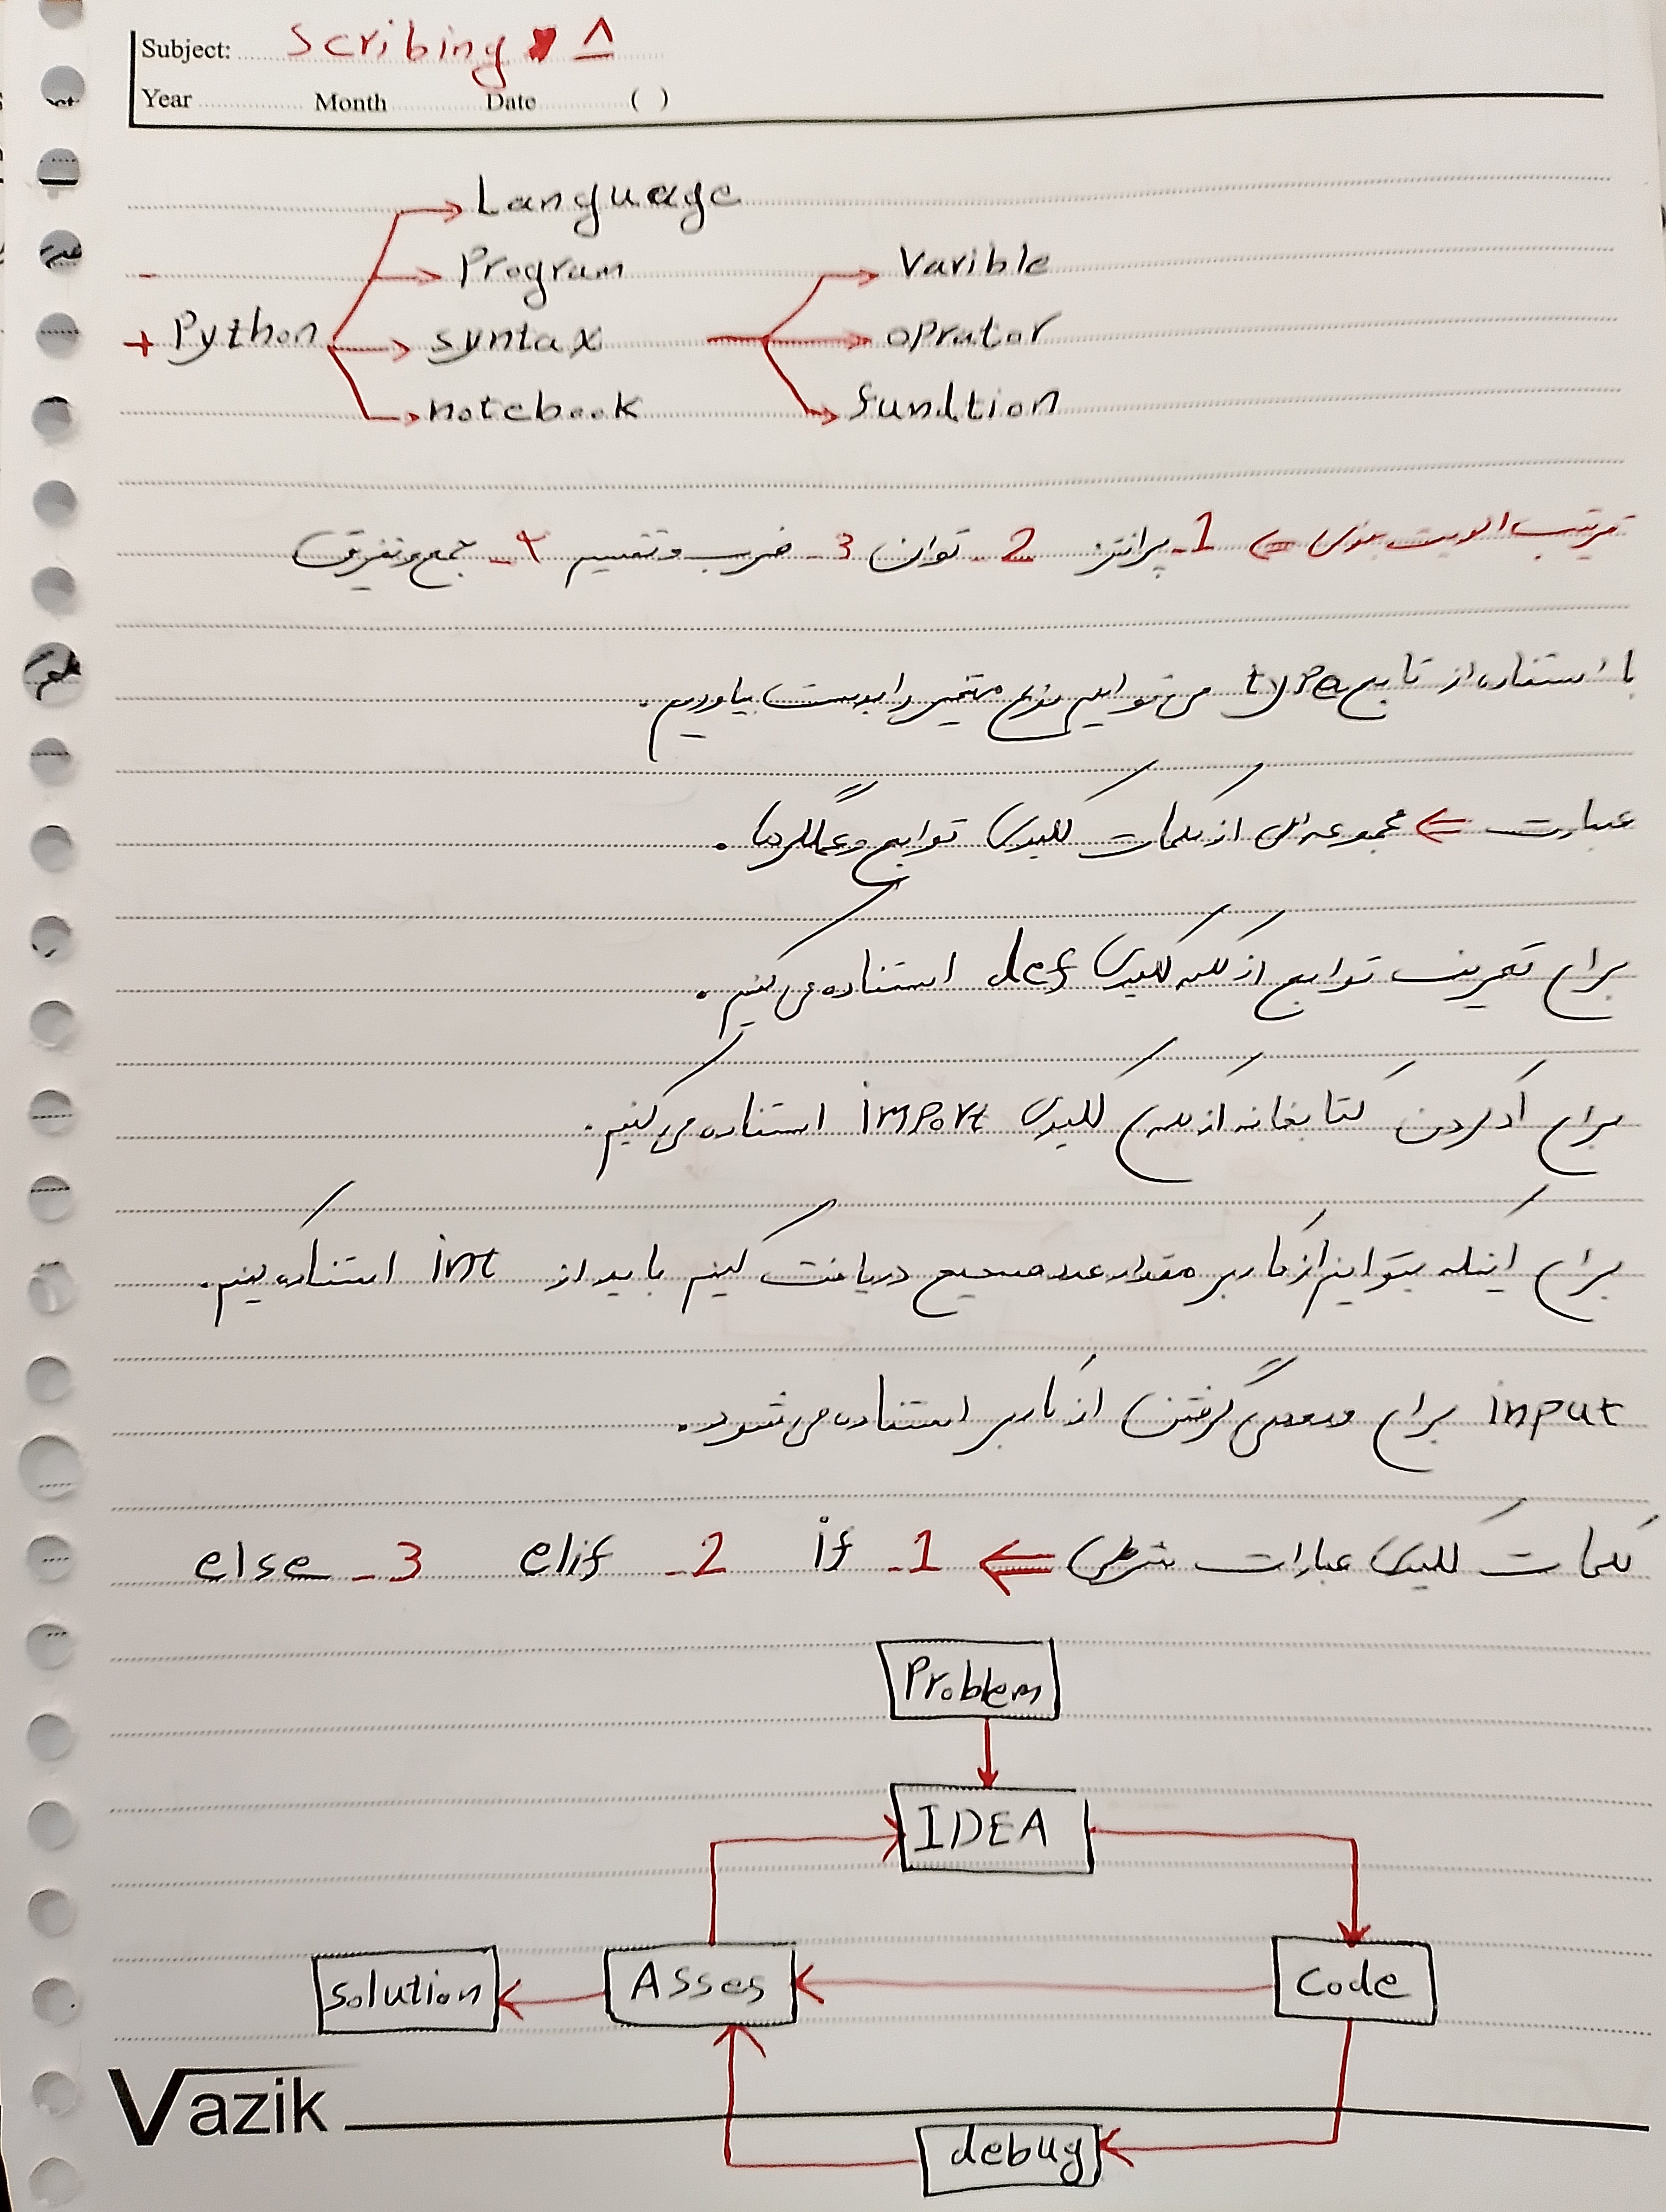 Subject: Scribing ۸
Year Month Date ( )
Language
Program Varible
+ Python syntax oprator
notebook fundtion
ترتیب الویت بندی ⇐ 1_ پرانتز 2_ توان 3_ ضرب و تقسیم ۴_ جمع و تفریق
با استفاده از تابع type می توانیم نوع متغیر را بدست بیاوریم.
عبارت ⇐ مجموعه ای از کلمات کلیدی توابع و عملگرها.
برای تعریف توابع از کلمه کلیدی def استفاده می کنیم.
برای اد کردن کتابخانه از کلمه ی کلیدی import استفاده می کنیم.
برای اینکه بتوانیم از کاربر مقدار عدد صحیح دریافت کنیم باید از int استفاده کنیم.
input برای گرفتن از کاربر استفاده می شود.
کلمات کلیدی عبارات شرطی ⇐ 1_ if 2_ elif 3_ else
Problem
IDEA
solution Asses Code
Vazik
debug